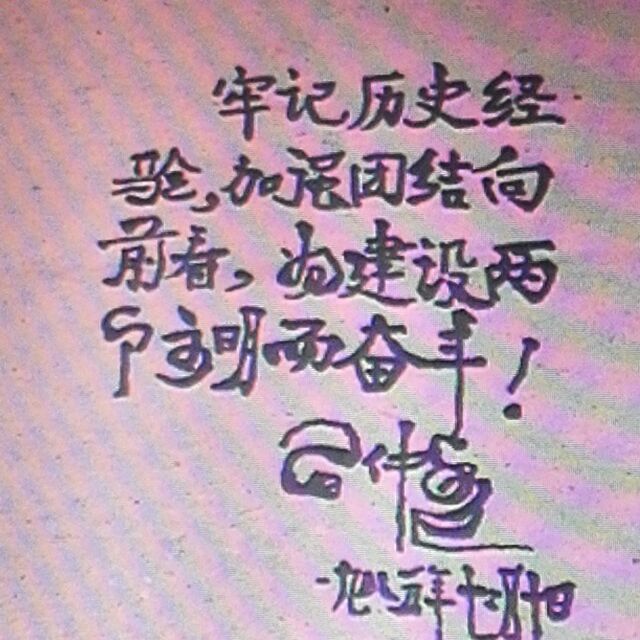 牢记历史经
验,加强团结向
前看,为建设两
个文明而奋斗!
一九八五年七月十日